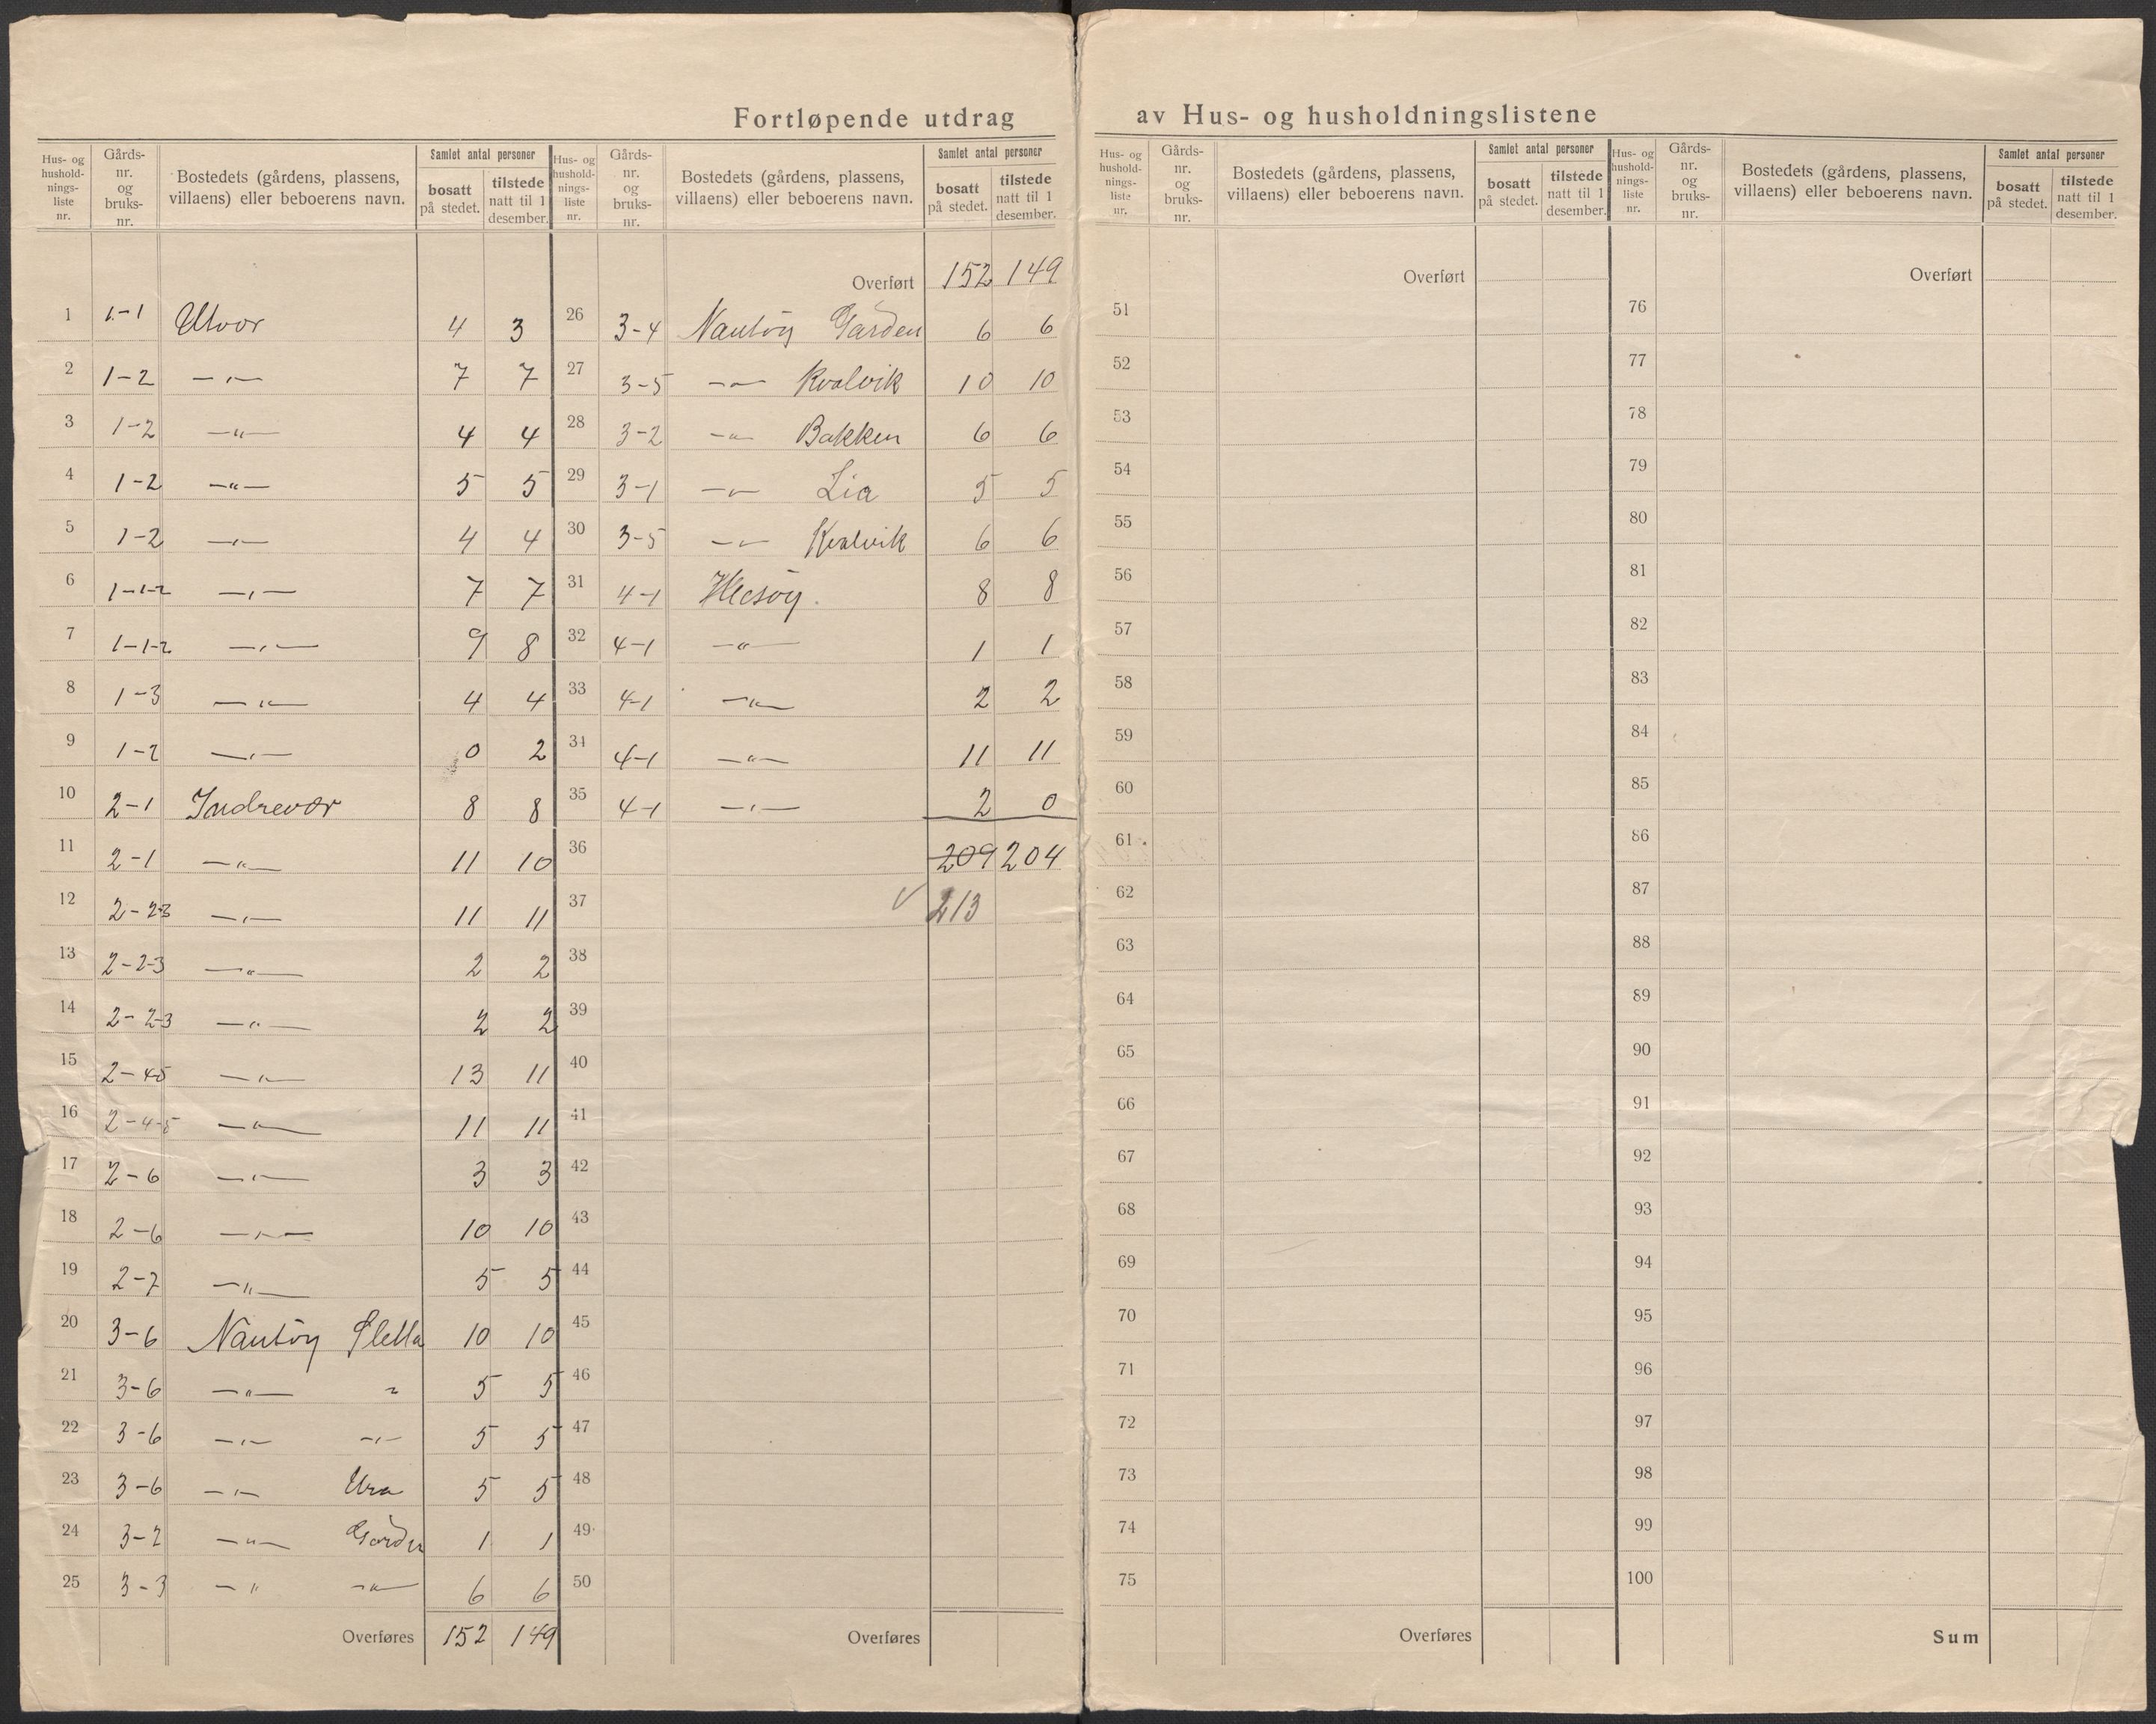 Fortløpende utdrag av Hus- og husholdningslistene
Hus- og hushold-nings-liste nr. Gårds-nr. og bruks-nr. Bostedets (gårdens, plassens, villaens) eller beboerens navn. Samlet antal personer bosatt på stedet. tilstede natt til 1 desember.
1 1-1 Utvær 4 3
2 1-2 —„— 7 7
3 1-2 —„— 4 4
4 1-2 —„— 5 5
5 1-2 —„— 4 4
6 1-1-2 —„— 7 7
7 1-1-2 —„— 9 8
8 1-3 —„— 4 4
9 1-2 —„— 0 2
10 2-1 Indrevær 8 8
11 2-1 —„— 11 10
12 2-2-3 —„— 11 11
13 2-2-3 —„— 2 2
14 2-2-3 —„— 2 2
15 2-4-5 —„— 13 11
16 2-4-5 —„— 11 11
17 2-6 —„— 3 3
18 2-6 —„— 10 10
19 2-7 —„— 5 5
20 3-6 Nautöy Sletta 10 10
21 3-6 —„— „ 5 5
22 3-6 —„— —„— 5 5
23 3-6 —„— Ura 5 5
24 3-2 —„— Gården 1 1
25 3-3 —„— —„— 6 6
Overføres 152 149
Hus- og hushold-nings-liste nr. Gårds-nr. og bruks-nr. Bostedets (gårdens, plassens, villaens) eller beboerens navn. Samlet antal personer bosatt på stedet. tilstede natt til 1 desember.
Overført 152 149
26 3-4 Nautöy Gården 6 6
27 3-5 —„— Kvalvik 10 10
28 3-2 —„— Bakken 6 6
29 3-1 —„— Lia 5 5
30 3-5 —„— Kvalvik 6 6
31 4-1 Hæsöy. 8 8
32 4-1 —„— 1 1
33 4-1 —„— 2 2
34 4-1 —„— 11 11
35 4-1 —„— 2 0
36 209 204
37 ✓ 213
38
39
40
41
42
43
44
45
46
47
48
49
50
Overføres
Hus- og hushold-nings-liste nr. Gårds-nr. og bruks-nr. Bostedets (gårdens, plassens, villaens) eller beboerens navn. Samlet antal personer bosatt på stedet. tilstede natt til 1 desember.
Overført
51
52
53
54
55
56
57
58
59
60
61
62
63
64
65
66
67
68
69
70
71
72
73
74
75
Overføres
Hus- og hushold-nings-liste nr. Gårds-nr. og bruks-nr. Bostedets (gårdens, plassens, villaens) eller beboerens navn. Samlet antal personer bosatt på stedet. tilstede natt til 1 desember.
Overført
76
77
78
79
80
81
82
83
84
85
86
87
88
89
90
91
92
93
94
95
96
97
98
99
100
Sum